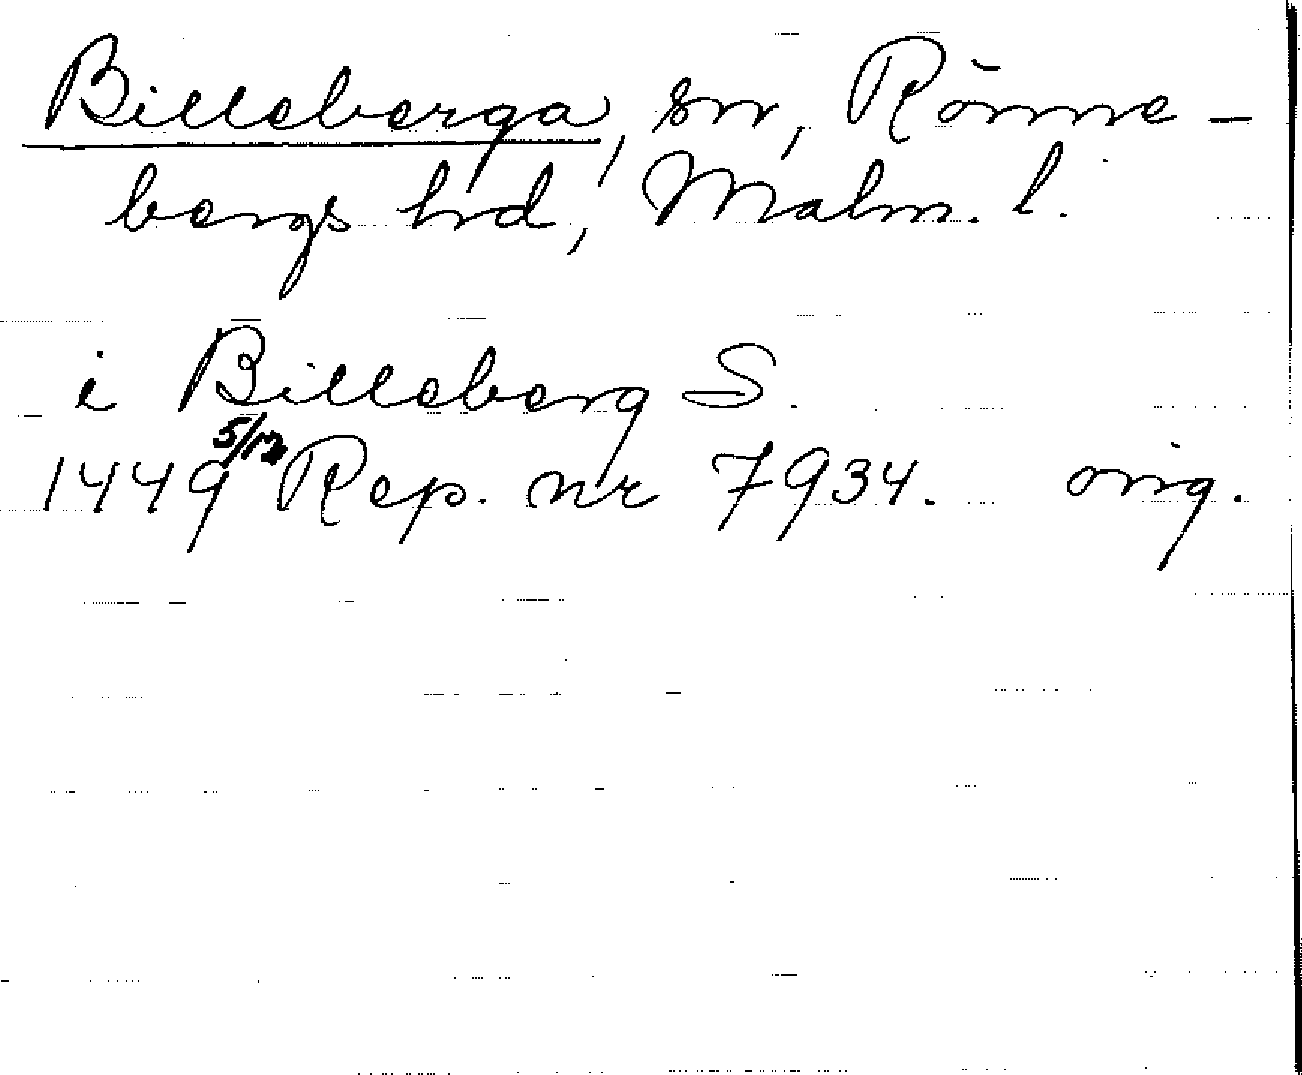 Billeberga, sn, Rönne-
bergs hrd, Malm. l.
i Billeberg S.
1449 5/12 Rep. nr 7934. orig.